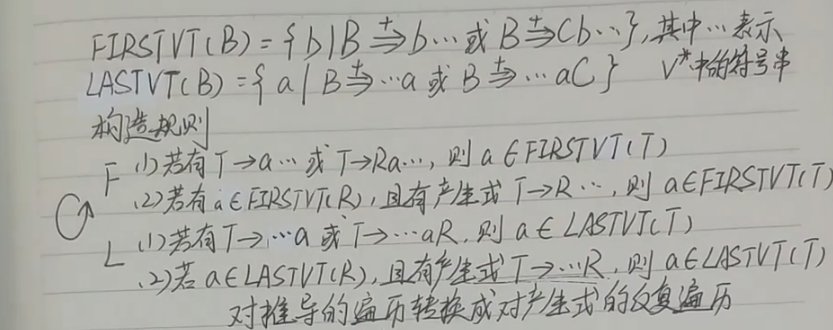 FIRSTVT(B)={b|B⇒⁺b…或 B⇒⁺Cb…},其中…表示
LASTVT(B)={a|B⇒⁺…a 或 B⇒⁺…aC} V*中的符号串
构造规则
F (1)若有T→a… 或 T→Ra…, 则 a∈FIRSTVT(T)
(2)若有a∈FIRSTVT(R),且有产生式 T→R…, 则 a∈FIRSTVT(T)
L (1)若有T→…a 或T→…aR, 则 a∈LASTVT(T)
(2)若 a∈LASTVT(R),且有产生式T→…R, 则 a∈LASTVT(T)
对推导的遍历转换成对产生式的反复遍历